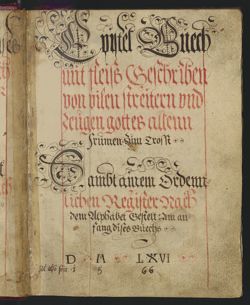 Epistel Buech
mit fleiß Geschriben
von vilen streittern vnd
Zeugen gottes allenn
frumen zum Trosst
Sambt ainem Ordenn
lichen Register Nach
dem Alphabet Gestelt Am an
fang dises Buechs
D M LXVI
1 5 66